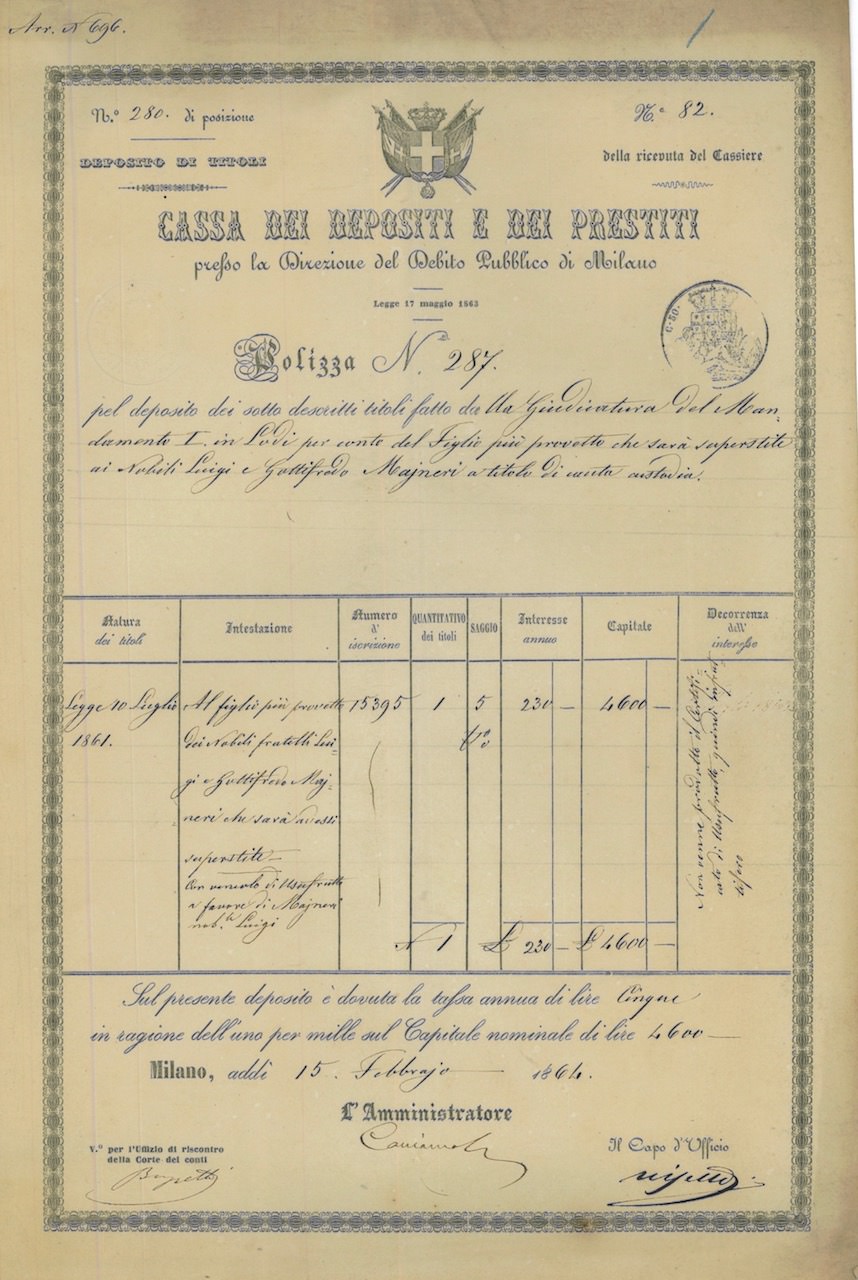 Arr. N 696.
1
N.° 280. di posizione
N.° 82.
DEPOSITO DI TITOLI
della ricevuta del Cassiere
CASSA DEI DEPOSITI E DEI PRESTITI
presso la Direzione del Debito Pubblico di Milano
Legge 17 maggio 1863
C. 50.
Polizza N. 287.
pel deposito dei sotto descritti titoli fatto da lla Giudicatura del Man-
damento I. in Lodi per conto del Figlio più provetto che sarà superstite
ai Nobili Luigi e Gottifredo Majneri a titolo di custodia.
Natura dei titoli
Intestazione
Numero d' iscrizione
QUANTITATIVO dei titoli
SAGGIO
Interesse annuo
Capitale
Decorrenza dell' interesse
Legge 10 Luglio
1861.
Al figlio più provetto
dei Nobili fratelli Lui-
gi e Gottifredo Maj-
neri che sarà ad essi
superstite —
Con vincolo di Usufrutto
a favore di Majneri
nob. Luigi
15395
1
5
%
230 —
4600 —
Non venne prodotto il Certifi-
cato di Usufrutto, quindi
N 1
£ 230 —
£ 4600 —
Sul presente deposito è dovuta la tassa annua di lire Cinque
in ragione dell'uno per mille sul Capitale nominale di lire 4600 —
Milano, addì 15. Febbrajo 1864.
L'Amministratore
V.° per l'Uffizio di riscontro
della Corte dei conti
Il Capo d'Ufficio